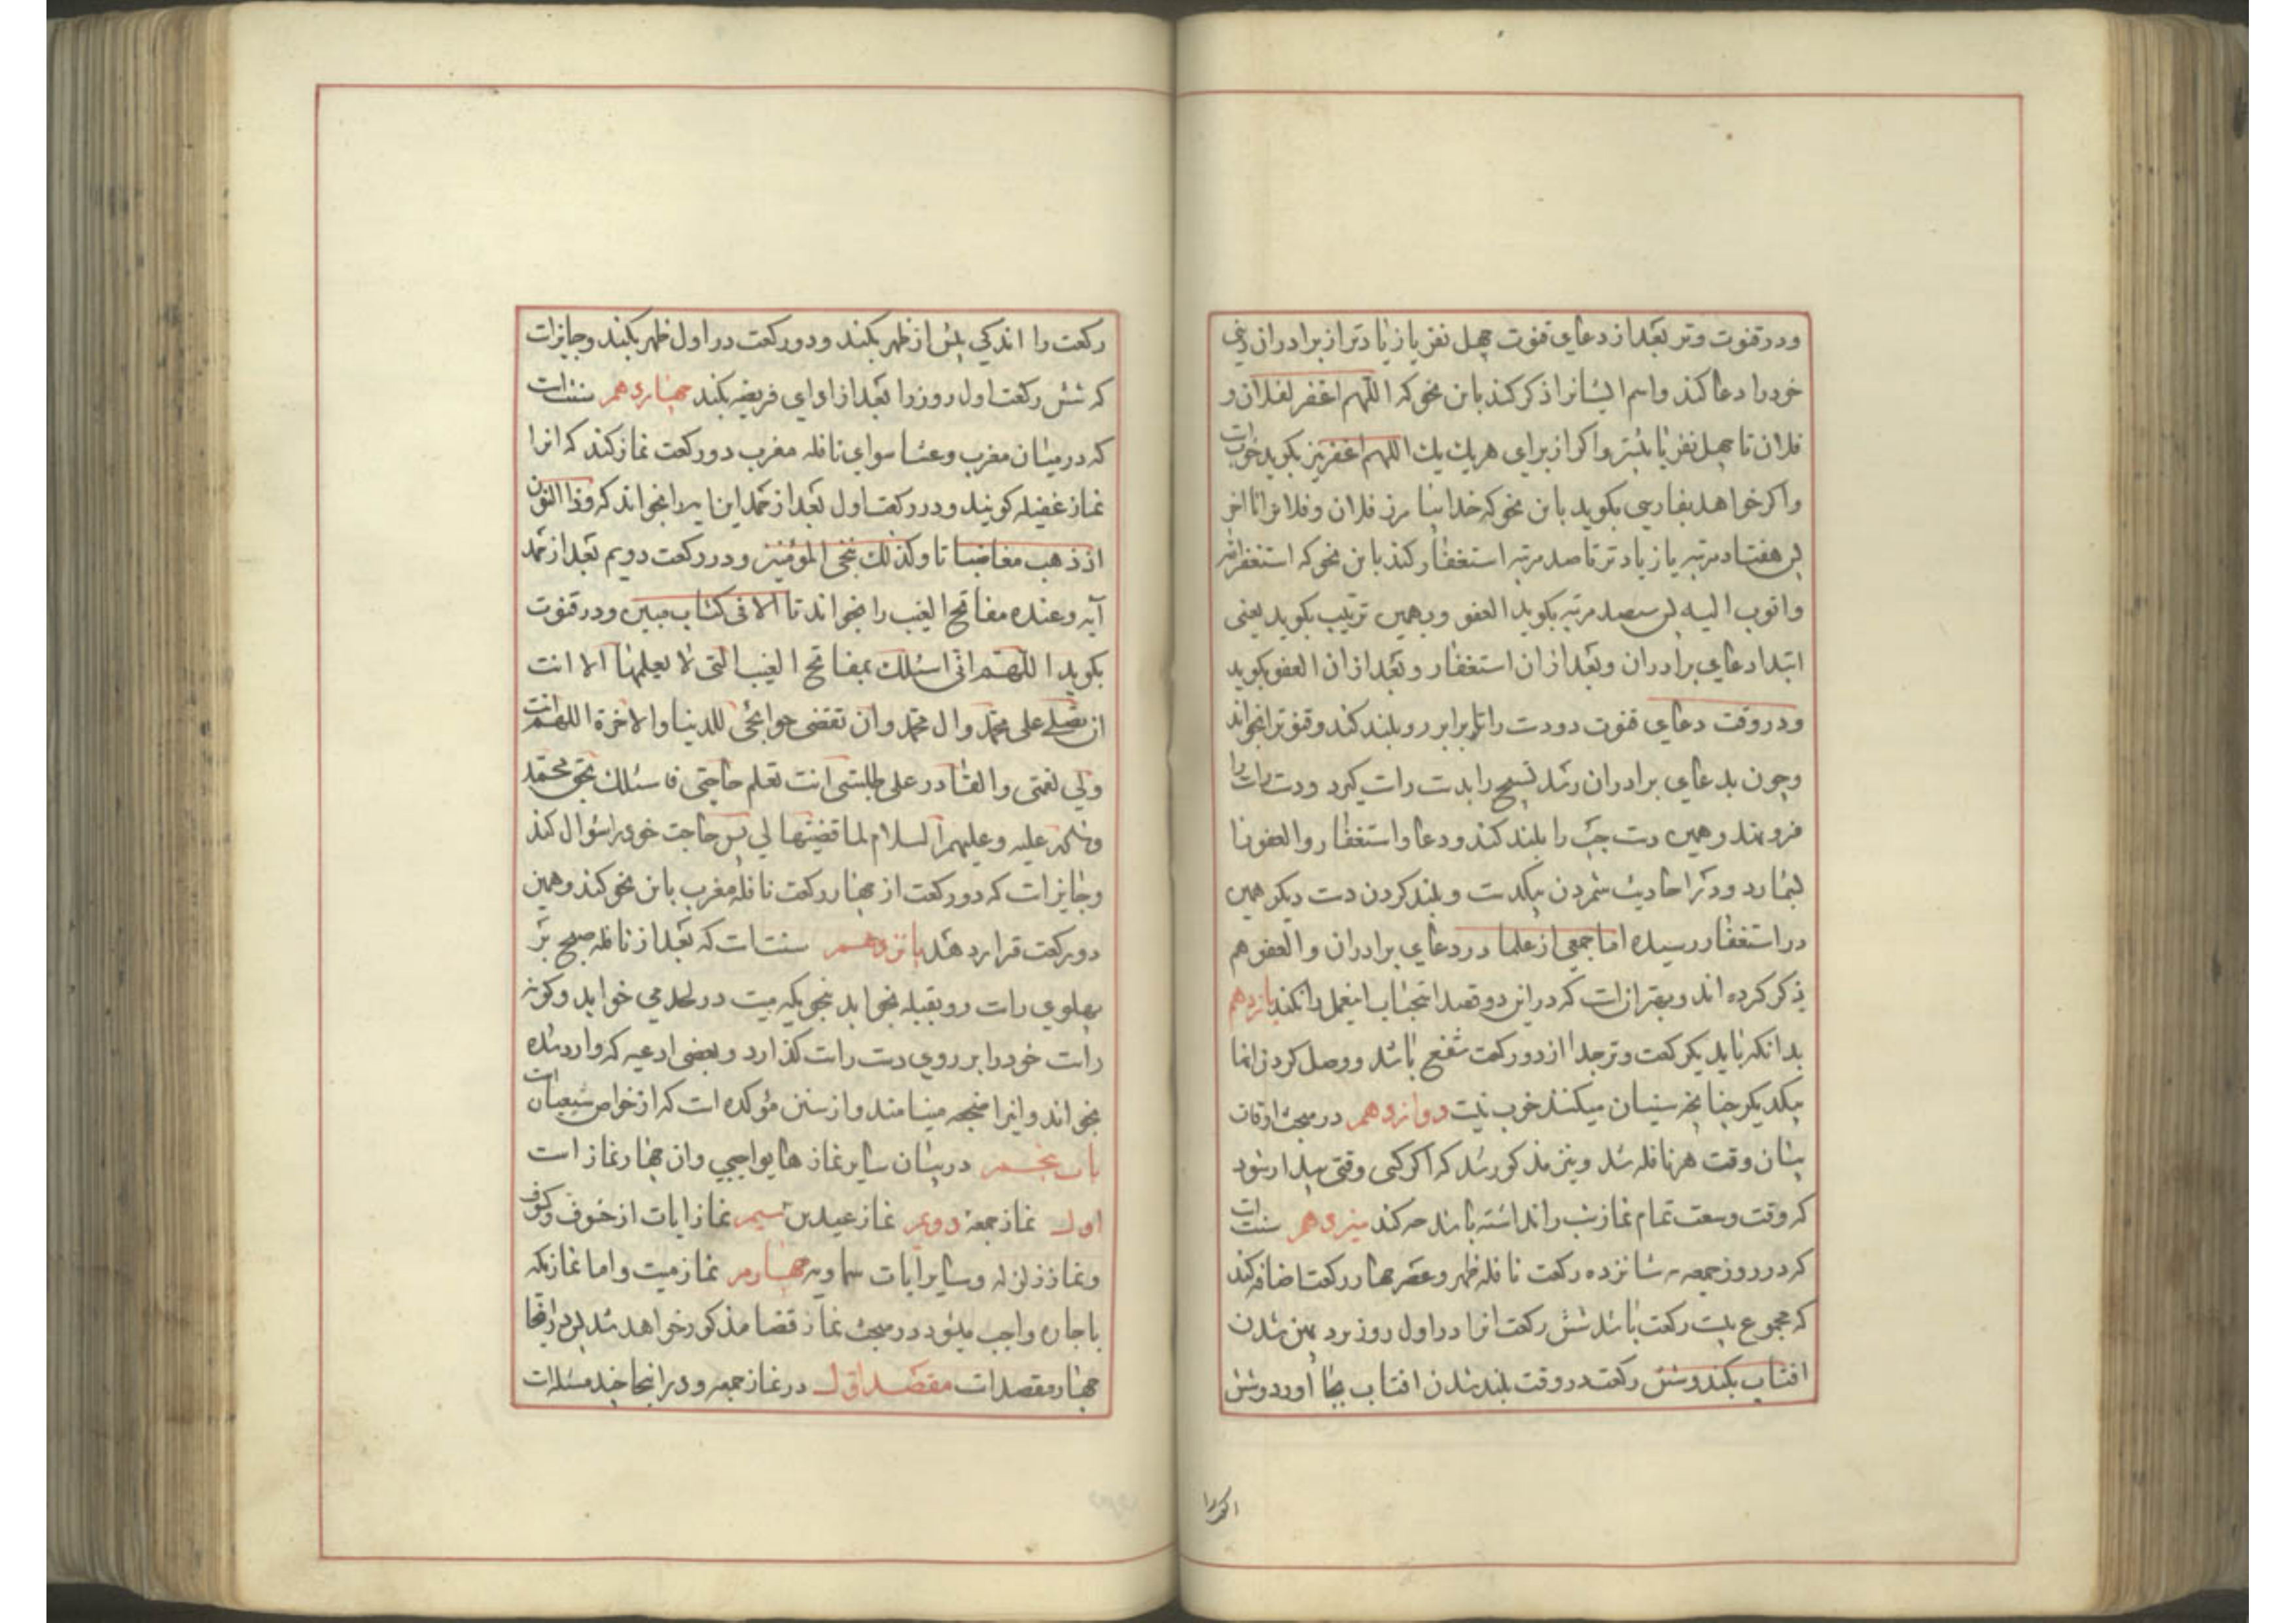 ودر قنوت وتر بعد از دعای قنوت چهل نفر یا زیادتر از برادران دینی
خود را دعا کند واسم ایشانرا ذکر کند باین نحو که اللهم اغفر لفلان و
فلان تا چهل نفر یا بیشتر واکر از برای هریك یك اللهم اغفر نیز بکوید خوبست
واکر خواهد بفارسی بکوید باین نحو که خدایا بیامرز فلان وفلانرا تا اخر
پس هفتاد مرتبه یا زیادتر تا صد مرتبه استغفار کند باین نحو که استغفرالله
واتوب الیه پس سیصد مرتبه بکوید العفو وبهمین ترتیب بکوید یعنی
ابتدا دعای برادران وبعد از ان استغفار وبعد از ان العفو بکوید
ودر وقت دعای قنوت دو دست را تا برابر رو بلند کند وقنوترا بخواند
وچون بدعای برادران رسد تسبیح را بدست راست کیرد ودست راست را
فرو نهد وهمین دست چپ را بلند کند ودعا واستغفار والعفو را
بشمارد ودر احادیث شمردن بیکدست وبلند کردن دست دیکر همین
در استغفار رسیده اما جمعی از علما در دعای برادران والعفو هم
ذکر کرده اند وبهتر انست که در این دو قصد استحباب اینعمل را نکند یازدهم
بدانکه باید یکرکعت وتر جدا از دو رکعت شفع باشد ووصل کردن انها
بیکدیکر چنانچه سنیان میکنند خوب نیست دوازدهم در مبحث اوقات
بیان وقت هر نافله شد ونیز مذکور شد که اکر کسی وقتی بیدار شود
که وقت وسعت تمام نماز شب را نداشته باشد چه کند سیزدهم سنت است
که در روز جمعه بر شانزده رکعت نافله ظهر وعصر چهار رکعت اضافه کند
که مجموع بیست رکعت باشد شش رکعت انرا در اول روز نزد پهن شدن
افتاب بکند وشش رکعت در وقت بلند شدن افتاب بجا اورد وشش
رکعت را اندکی پیش از ظهر بکند ودو رکعت در اول ظهر بکند وجایز است
که شش رکعت اول روز را بعد از ادای فریضه بکند چهاردهم سنت است
که در میان مغرب وعشا سوای نافله مغرب دو رکعت نماز کند که انرا
نماز غفیله کویند ودر رکعت اول بعد از حمد این ایه را بخواند که وذا النون
اذ ذهب مغاضبا تا وکذلك ننجی المؤمنین ودر رکعت دویم بعد از حمد
آیه وعنده مفاتح الغیب را بخواند تا الا فی کتاب مبین ودر قنوت
بکوید اللهم انی اسئلك بمفاتح الغیب التی لا یعلمها الا انت
ان تصلی علی محمد وال محمد وان تقضی حوائجی للدنیا والاخرة اللهم انت
ولی نعمتی والقادر علی طلبتی انت تعلم حاجتی فاسئلك بحق محمد
وآله علیه وعلیهم السلام لما قضیتها لی پس حاجت خود را سؤال کند
وجایز است که دو رکعت از چهار رکعت نافله مغرب باین نحو کند وهمین
دو رکعت قرار دهد پانزدهم سنت است که بعد از نافله صبح بر
پهلوی راست رو بقبله بخوابد بنحویکه میت در لحد می خوابد وکونه
راست خود را بر روی دست راست کذارد وبعضی ادعیه که وارد شده
بخواند واینرا ضجعه مینامند واز سنن مؤکده است که از خواص شیعیان است
باب پنجم در بیان سایر نماز های واجبی وان چهار نماز است
اول نماز جمعه دویم نماز عیدین سیم نماز ایات از خسوف وکسوف
ونماز زلزله وسایر آیات سماویه چهارم نماز میت واما نمازیکه
باجاره واجب میشود در مبحث نماز قضا مذکور خواهد شد پس در اینجا
چهار مقصد است مقصد اول در نماز جمعه ودر اینجا چند مسئله است